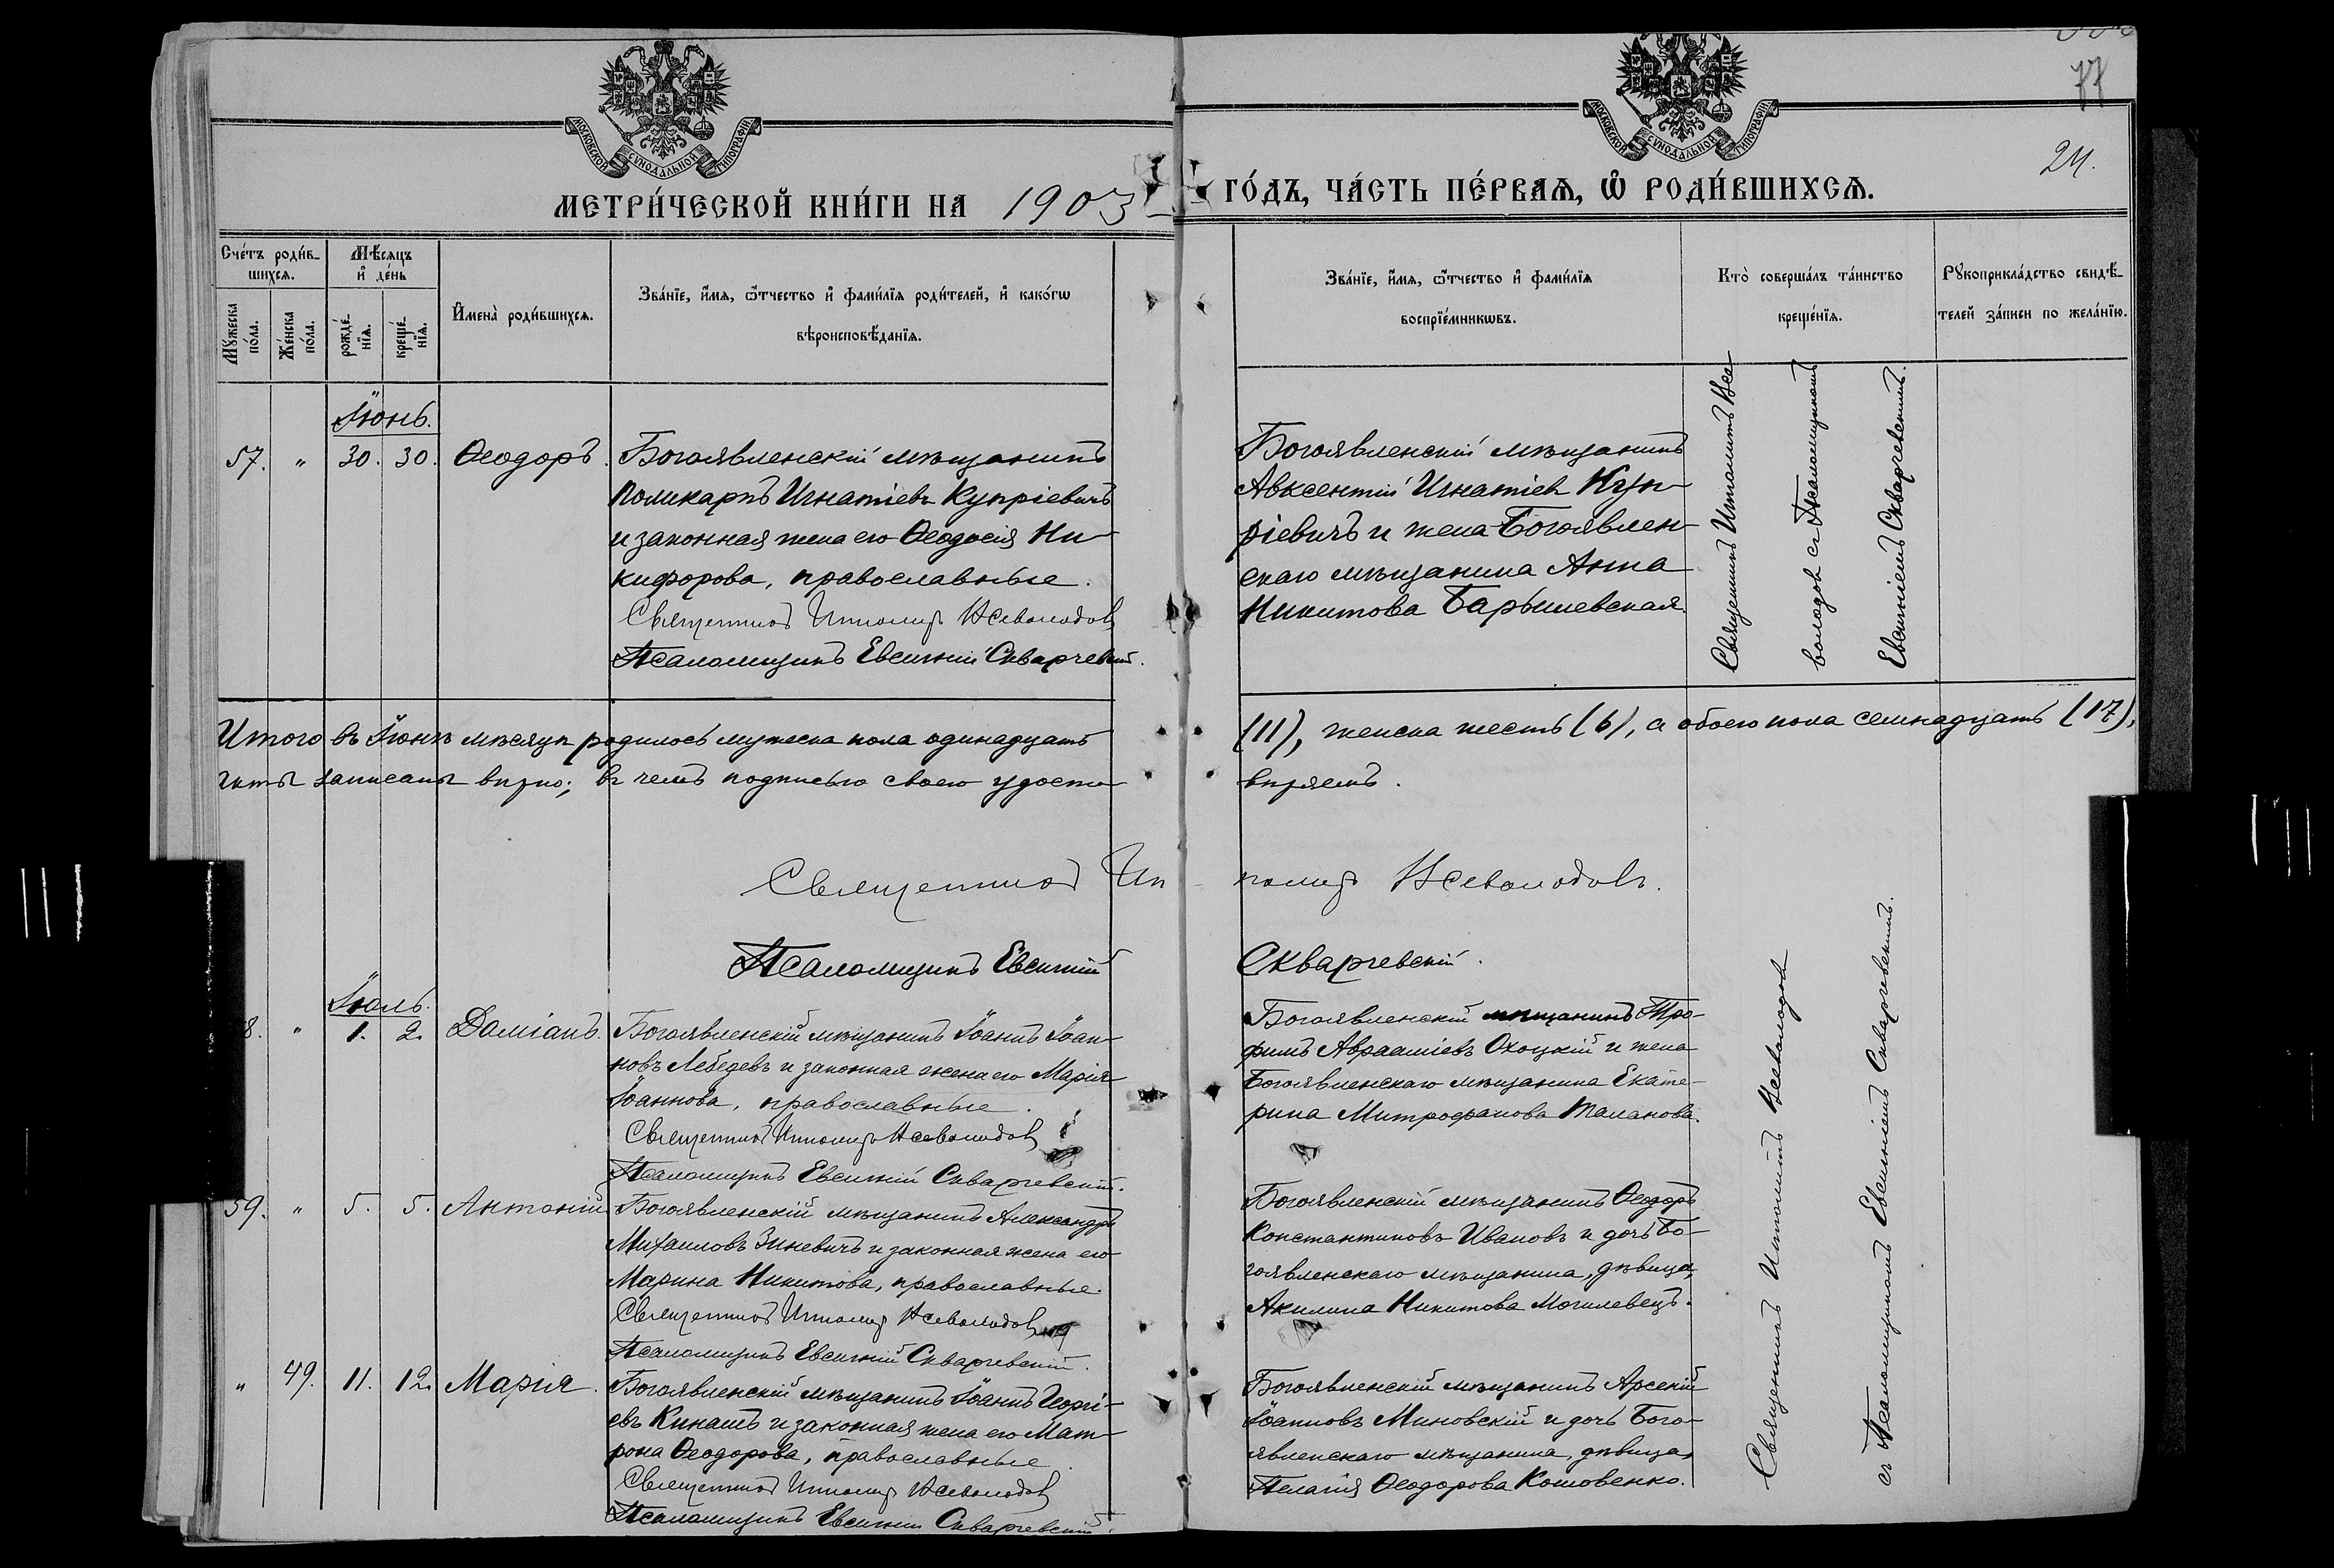 77
24.
МОСКОВСКОЙ СѴНОДАЛЬНОЙ ТИПОГРАФІИ
МОСКОВСКОЙ СѴНОДАЛЬНОЙ ТИПОГРАФІИ
МЕТРИ́ЧЕСКОЙ КНИ́ГИ НА 1903
ГО́ДЪ, ЧА́СТЬ ПЕ́РВАѦ, Ѡ҆ РОДИ́ВШИХСѦ.
Сче́тъ роди́в-
шихсѧ.
Мꙋжеска по́ла.
Же́нска по́ла.
Мѣ́сяцъ
и҆ де́нь
рожде́-
нїѧ.
креще́-
нїѧ.
И҆мена̀ роди́вшихсѧ.
Зва́нїе, и҆́мѧ, ѻ҆́тчество и҆ фами́лїѧ роди́телей, и҆ како́гѡ
вѣроисповѣ́данїѧ.
Зва́нїе, и҆́мѧ, ѻ҆́тчество и҆ фами́лїѧ
воспрїе́мникѡвъ.
Кто̀ соверша́лъ та́инство
креще́нїѧ.
Рꙋкоприкла́дство свидѣ́-
телей за́писи по жела́нїю.
Іюнь.
57. " 30. 30. Ѳеодоръ.
Богоявленскій мѣщанинъ
Поликарпъ Игнатіевъ Купріевичъ
и законная жена его Ѳеодосія Ни-
кифорова, православные.
Священникъ Ипполитъ Всеволодовъ
Псаломщикъ Евсигній Скварчевскій.
Богоявленскій мѣщанинъ
Авксентій Игнатіев Куп-
ріевичъ и жена Богоявлен-
скаго мѣщанина Анна
Никитова Барышевская.
Священникъ Ипполитъ Все-
володов съ Псаломщикомъ
Евсигніемъ Скварчевскимъ.
Итого въ Іюнѣ мѣсяцѣ родилось мужеска пола одинадцать
(11), женска шесть (6), а обоего пола семнадцать (17),
акты записаны вѣрно; въ чемъ подписью своею удосто-
вѣряемъ.
Священникъ Ип
политъ Всеволодовъ.
Псаломщикъ Евсигній
Скварчевскій.
Іюль.
8. " 1. 2. Даміанъ.
Богоявленскій мѣщанинъ Іоаннъ Іоан-
новъ Лебедевъ и законная жена его Марія
Іоаннова, православные.
Священникъ Ипполитъ Всеволодовъ
Псаломщикъ Евсигній Скварчевскій.
Богоявленскій мѣщанинъ Тро-
фимъ Авраамiевъ Охоцкій и жена
Богоявленскаго мѣщанина Екате-
рина Митрофанова Таланова.
59. " 5. 5. Антоній
Богоявленскій мѣщанинъ Александръ
Михаиловъ Зиневичъ и законная жена его
Марина Никитова, православные.
Священникъ Ипполитъ Всеволодовъ
Псаломщикъ Евсигній Скварчевскій.
Богоявленскій мѣщанинъ Ѳеодоръ
Константиновъ Ивановъ и дочь Бо-
гоявленскаго мѣщанина, дѣвица,
Акилина Никитова Могилевецъ.
" 49. 11. 12. Марія.
Богоявленскій мѣщанинъ Іоаннъ Георгі-
евъ Кинашъ и законная жена его Мат-
рона Ѳеодорова, православные.
Священникъ Ипполитъ Всеволодовъ
Псаломщикъ Евсигній Скварчевскій.
Богоявленскій мѣщанинъ Арсеній
Іоанновъ Миновскій и дочь Бого-
явленскаго мѣщанина, дѣвица,
Пелагія Ѳеодорова Кошовенко.
Священникъ Ипполитъ Всеволодовъ
съ Псаломщикомъ Евсигніемъ Скварчевскимъ.